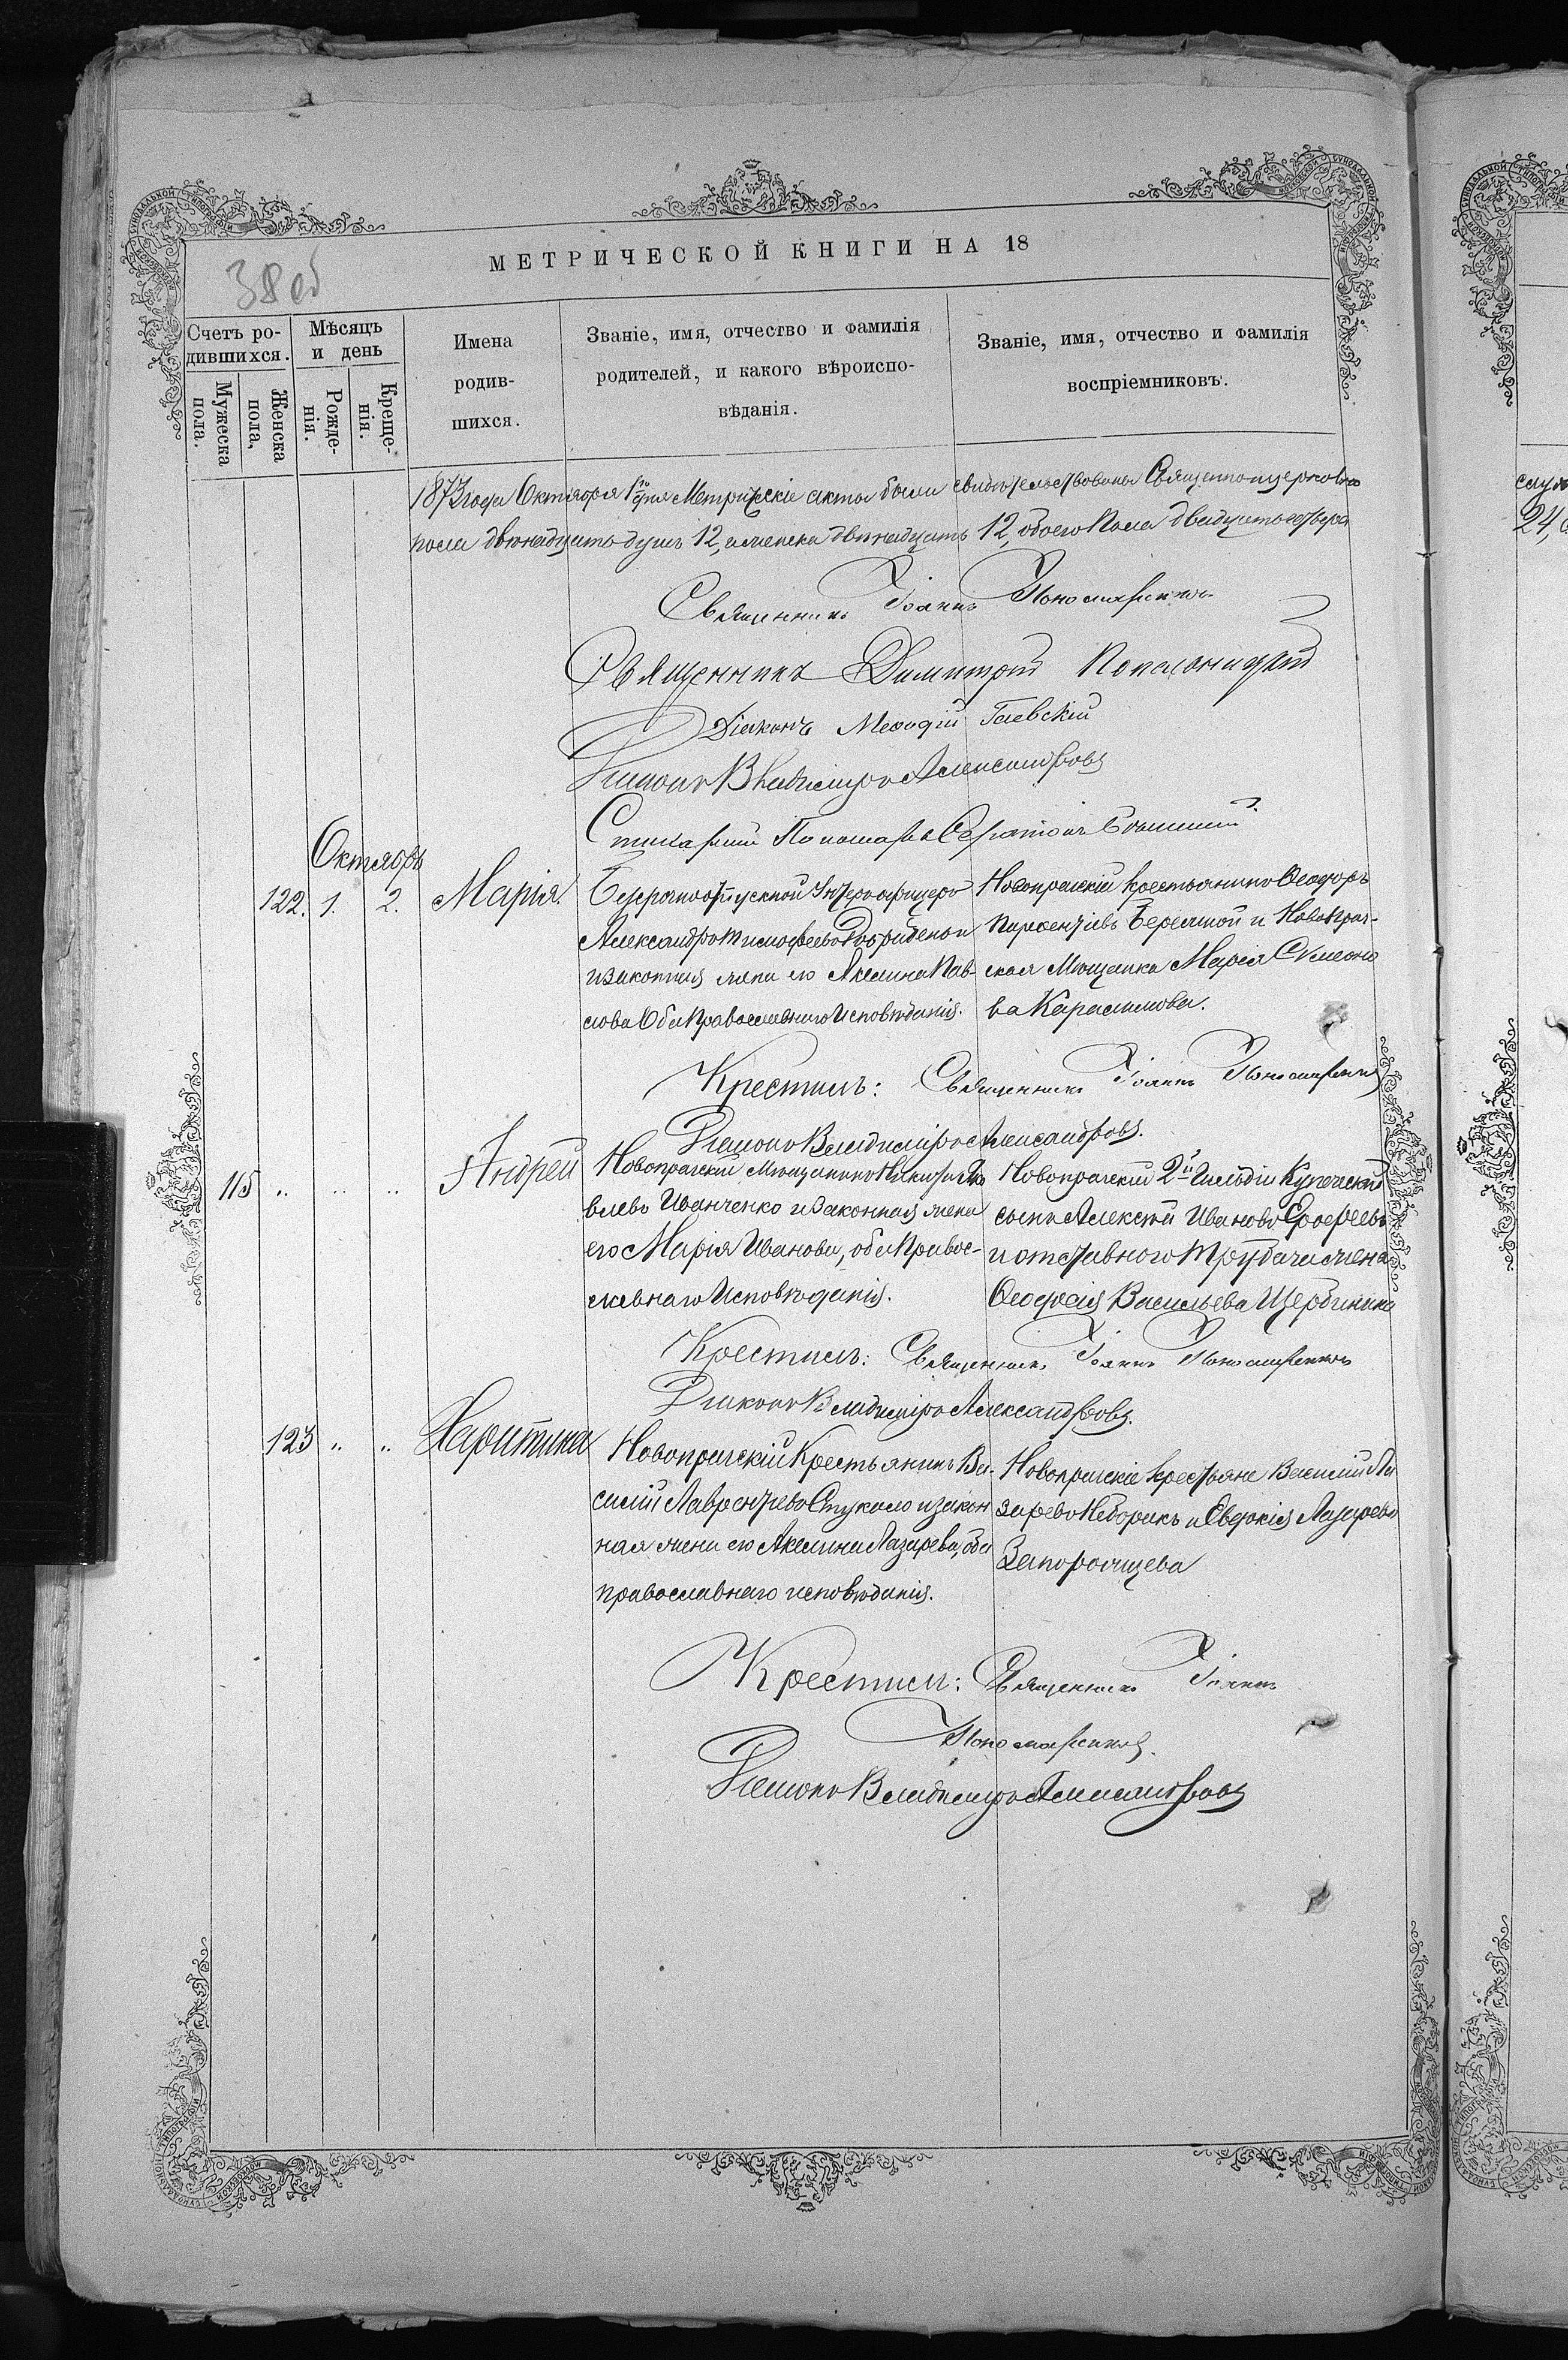 МЕТРИЧЕСКОЙ КНИГИ НА 18
38 об
Счетъ ро-
дившихся.
Мужеска
пола.
Женска
пола,
Мѣсяцъ
и день
Рожде-
нія.
Креще-
нія.
Имена
родив-
шихся.
Званіе, имя, отчество и фамилія
родителей, и какого вѣроиспо-
вѣданія.
Званіе, имя, отчество и фамилія
воспріемниковъ.
1873 года Октября 1го дня Метрическіе акты были свидѣтельствованы Священноцерковно
пола двѣнадцать душъ 12, а женска двѣнадцать 12, обоего пола двадцать четыре
24,
Священникъ Іоаннъ Пономаренко
Священникъ Димитрій
Діаконъ Меѳодій Гаевскій
Діаконъ Владиміръ Александровъ
Стихарный Пономарь
Октябрь
122. 1. 2. Марія.
Безсрочноотпускной Унтеръ офицеръ
Александръ Тимофеевъ и
законная жена его Акилина Пав-
лова Оба Православнаго Исповѣданія.
Новопражскій крестьянинъ Ѳеодоръ
Парфентіевъ Бережной и Новопраж-
ская Мѣщанка Марія Симеоно
ва Карасикова.
Крестилъ: Священникъ Іоаннъ Пономаренко
Діаконъ Владиміръ Александровъ.
115 " " " Андрей
Новопражскій Мѣщанинъ Никифоръ Яко
влевъ Иванченко и законная жена
его Марія Иванова, оба Правос-
лавнаго Исповѣданія.
Новопражскій 2й Гильдіи Купеческій
сынъ Алексѣй Ивановъ Ерофеевъ
и отставного Трубача жена
Ѳеодосія Васильева Щербинина
Крестилъ: Священникъ Іоаннъ Пономаренко
Діаконъ Владиміръ Александровъ.
123 " " Харитина
Новопражскій Крестьянинъ Ва-
силій Лаврентіевъ Стукало и закон
ная жена его Акилина Лазарева, оба
православнаго исповѣданія.
Новопражскіе крестьяне Василій Ла
заревъ Неборакъ и Евдокія Лазарева
Запорожцева
Крестилъ: Священникъ Іоаннъ
Пономаренко.
Діаконъ Владиміръ Александровъ